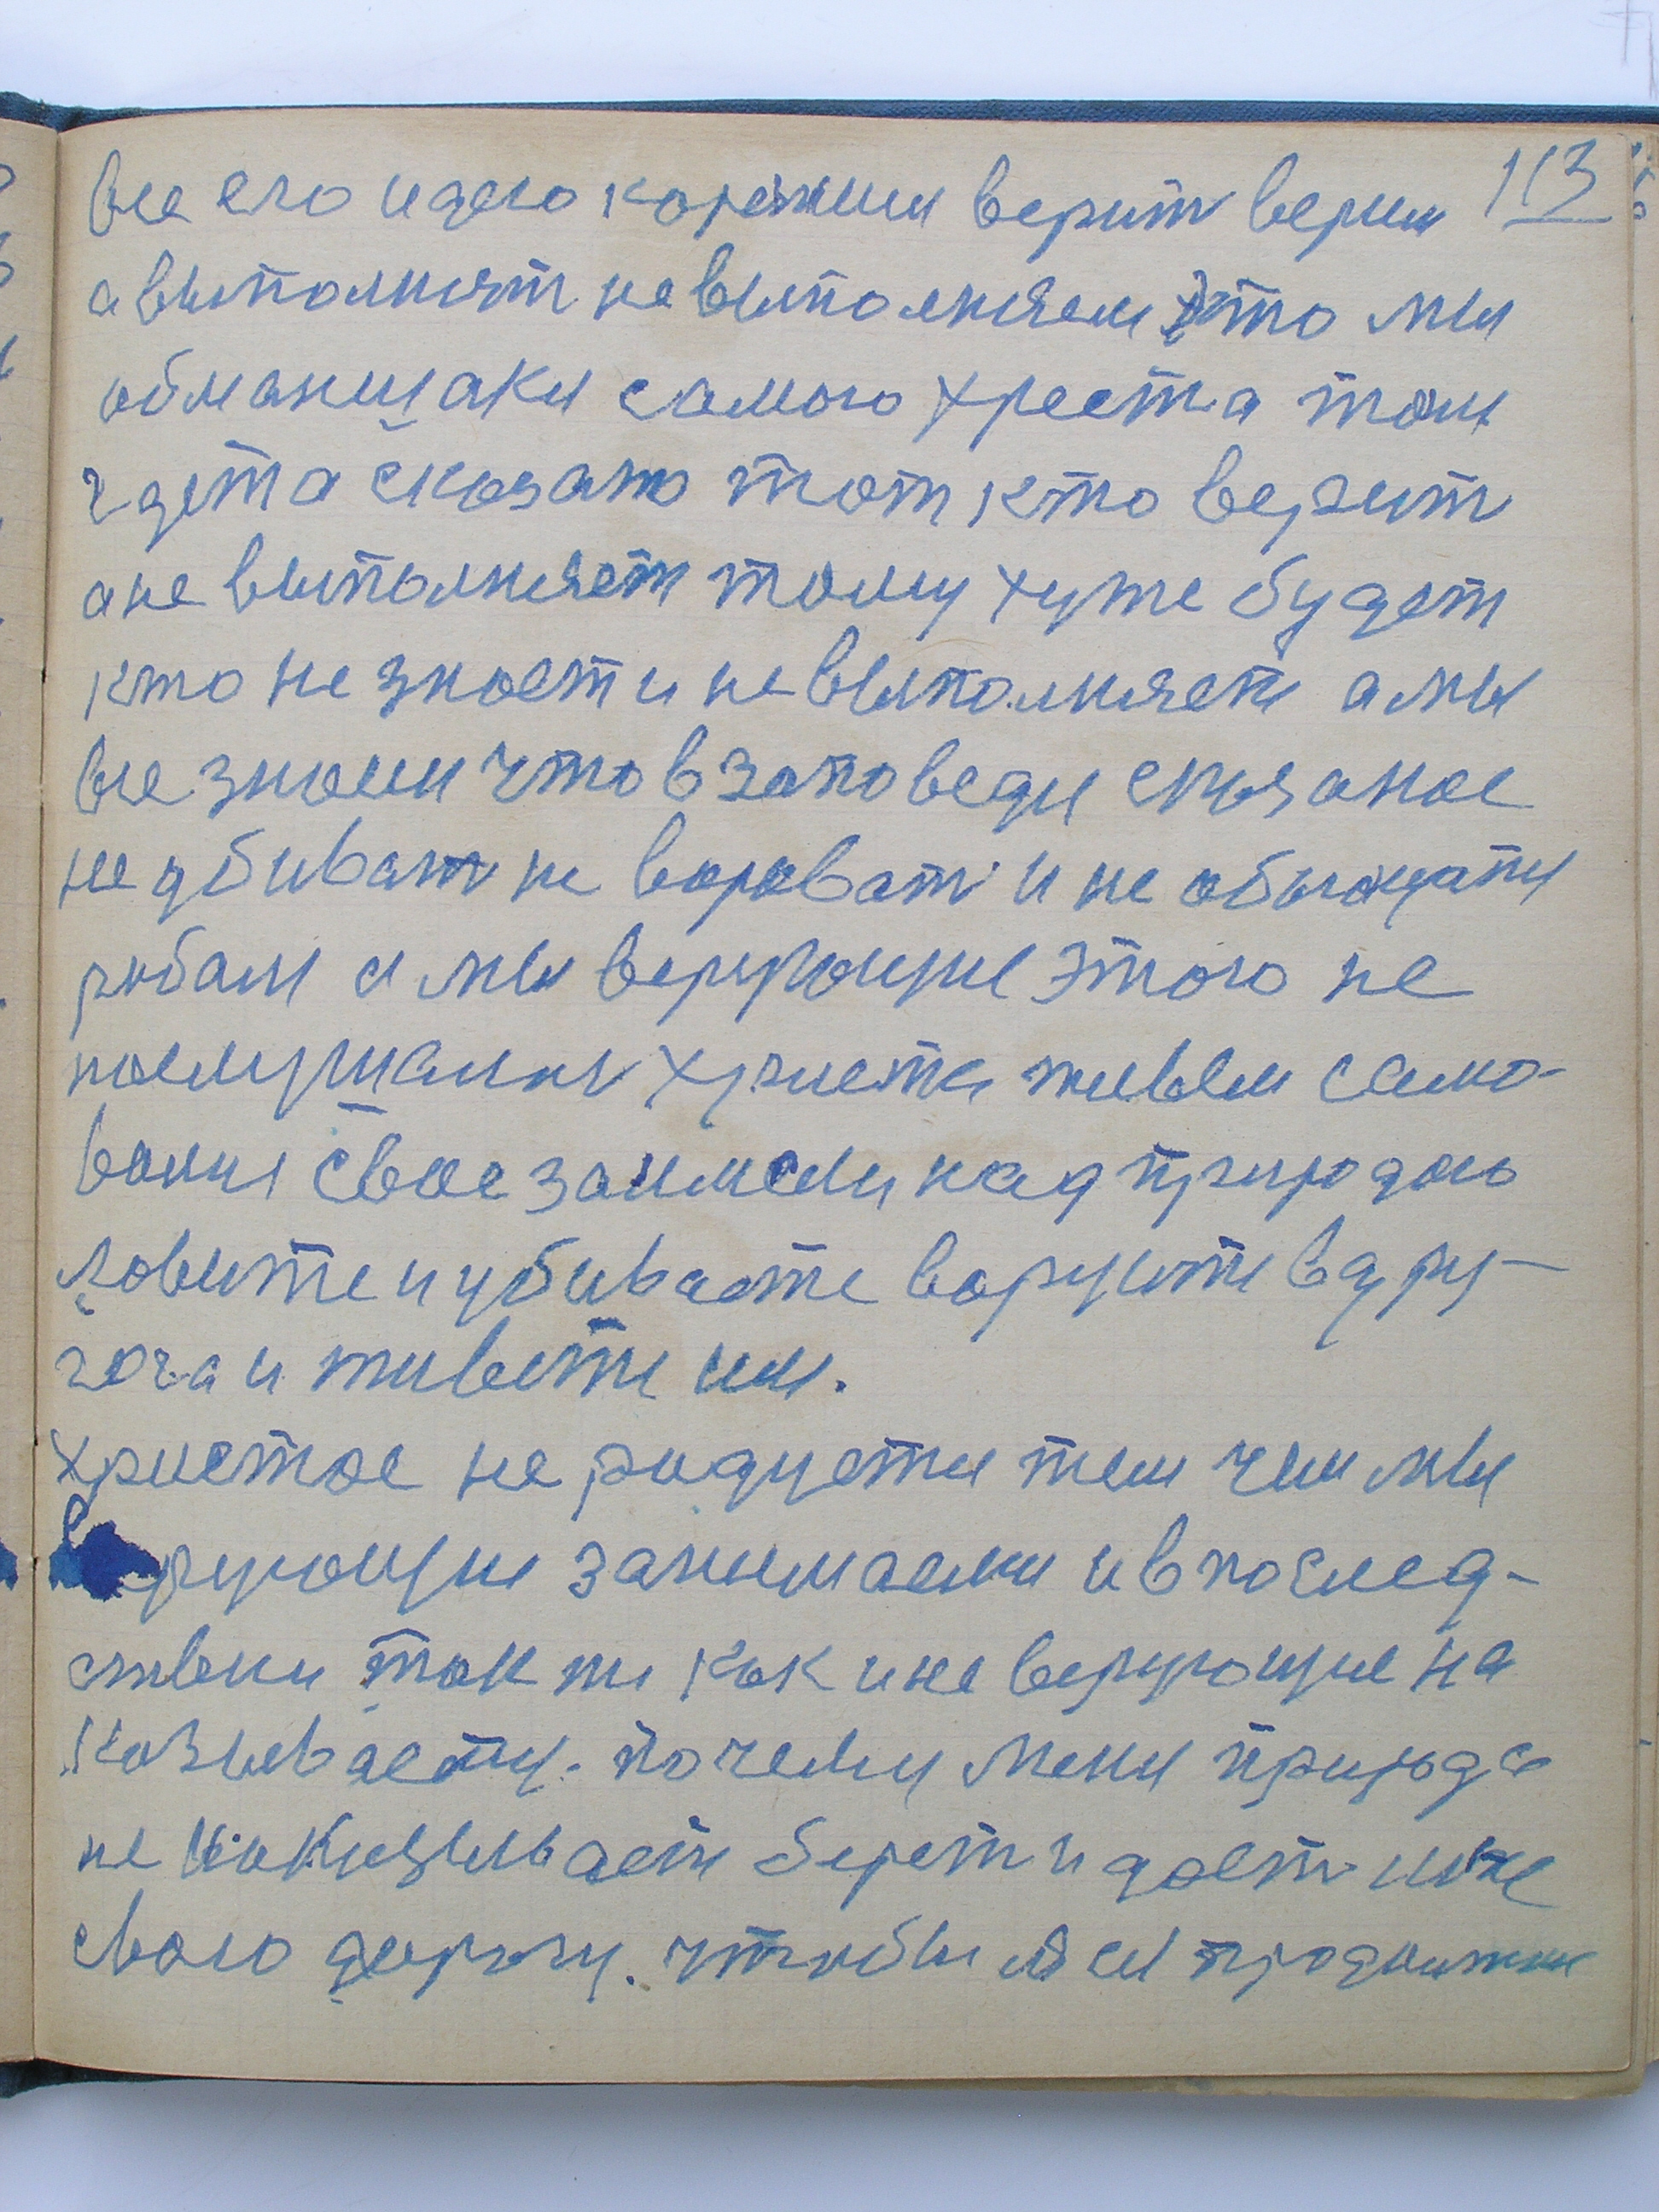 113
все его идею верит верим
а выполнят не выполняем это мы
обманщаки самого хреста там
гдета сказано тот кто верит
а не выполняет тому хуже будет
кто не знает и не выполняет а мы
все знаем что в заповеди сказаное
не убиват не вороват и не
рабам а мы верующие этого не
послушалис христа живем само-
волия свое заимели над природаю
ловите и убиваете варуите в дру-
гога и живети им.
христос не радуети тем чим мы
верующие занимаеми и в послед-
ствеи так жи как и не верующие на
казывается. почему меня природа
не наказывает берет и дает мне
сваю дорогу. чтобы я ей